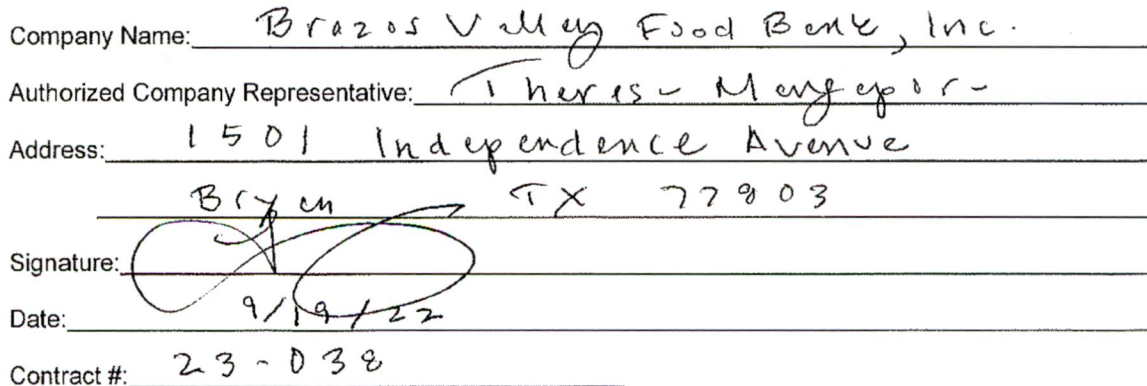 Company Name: Brazos Valley Food Bank, Inc.
Authorized Company Representative: Theresa Mangapora
Address: 1501 Independence Avenue
Bryan TX 77803
Signature:
Date: 9/19/22
Contract #: 23-038